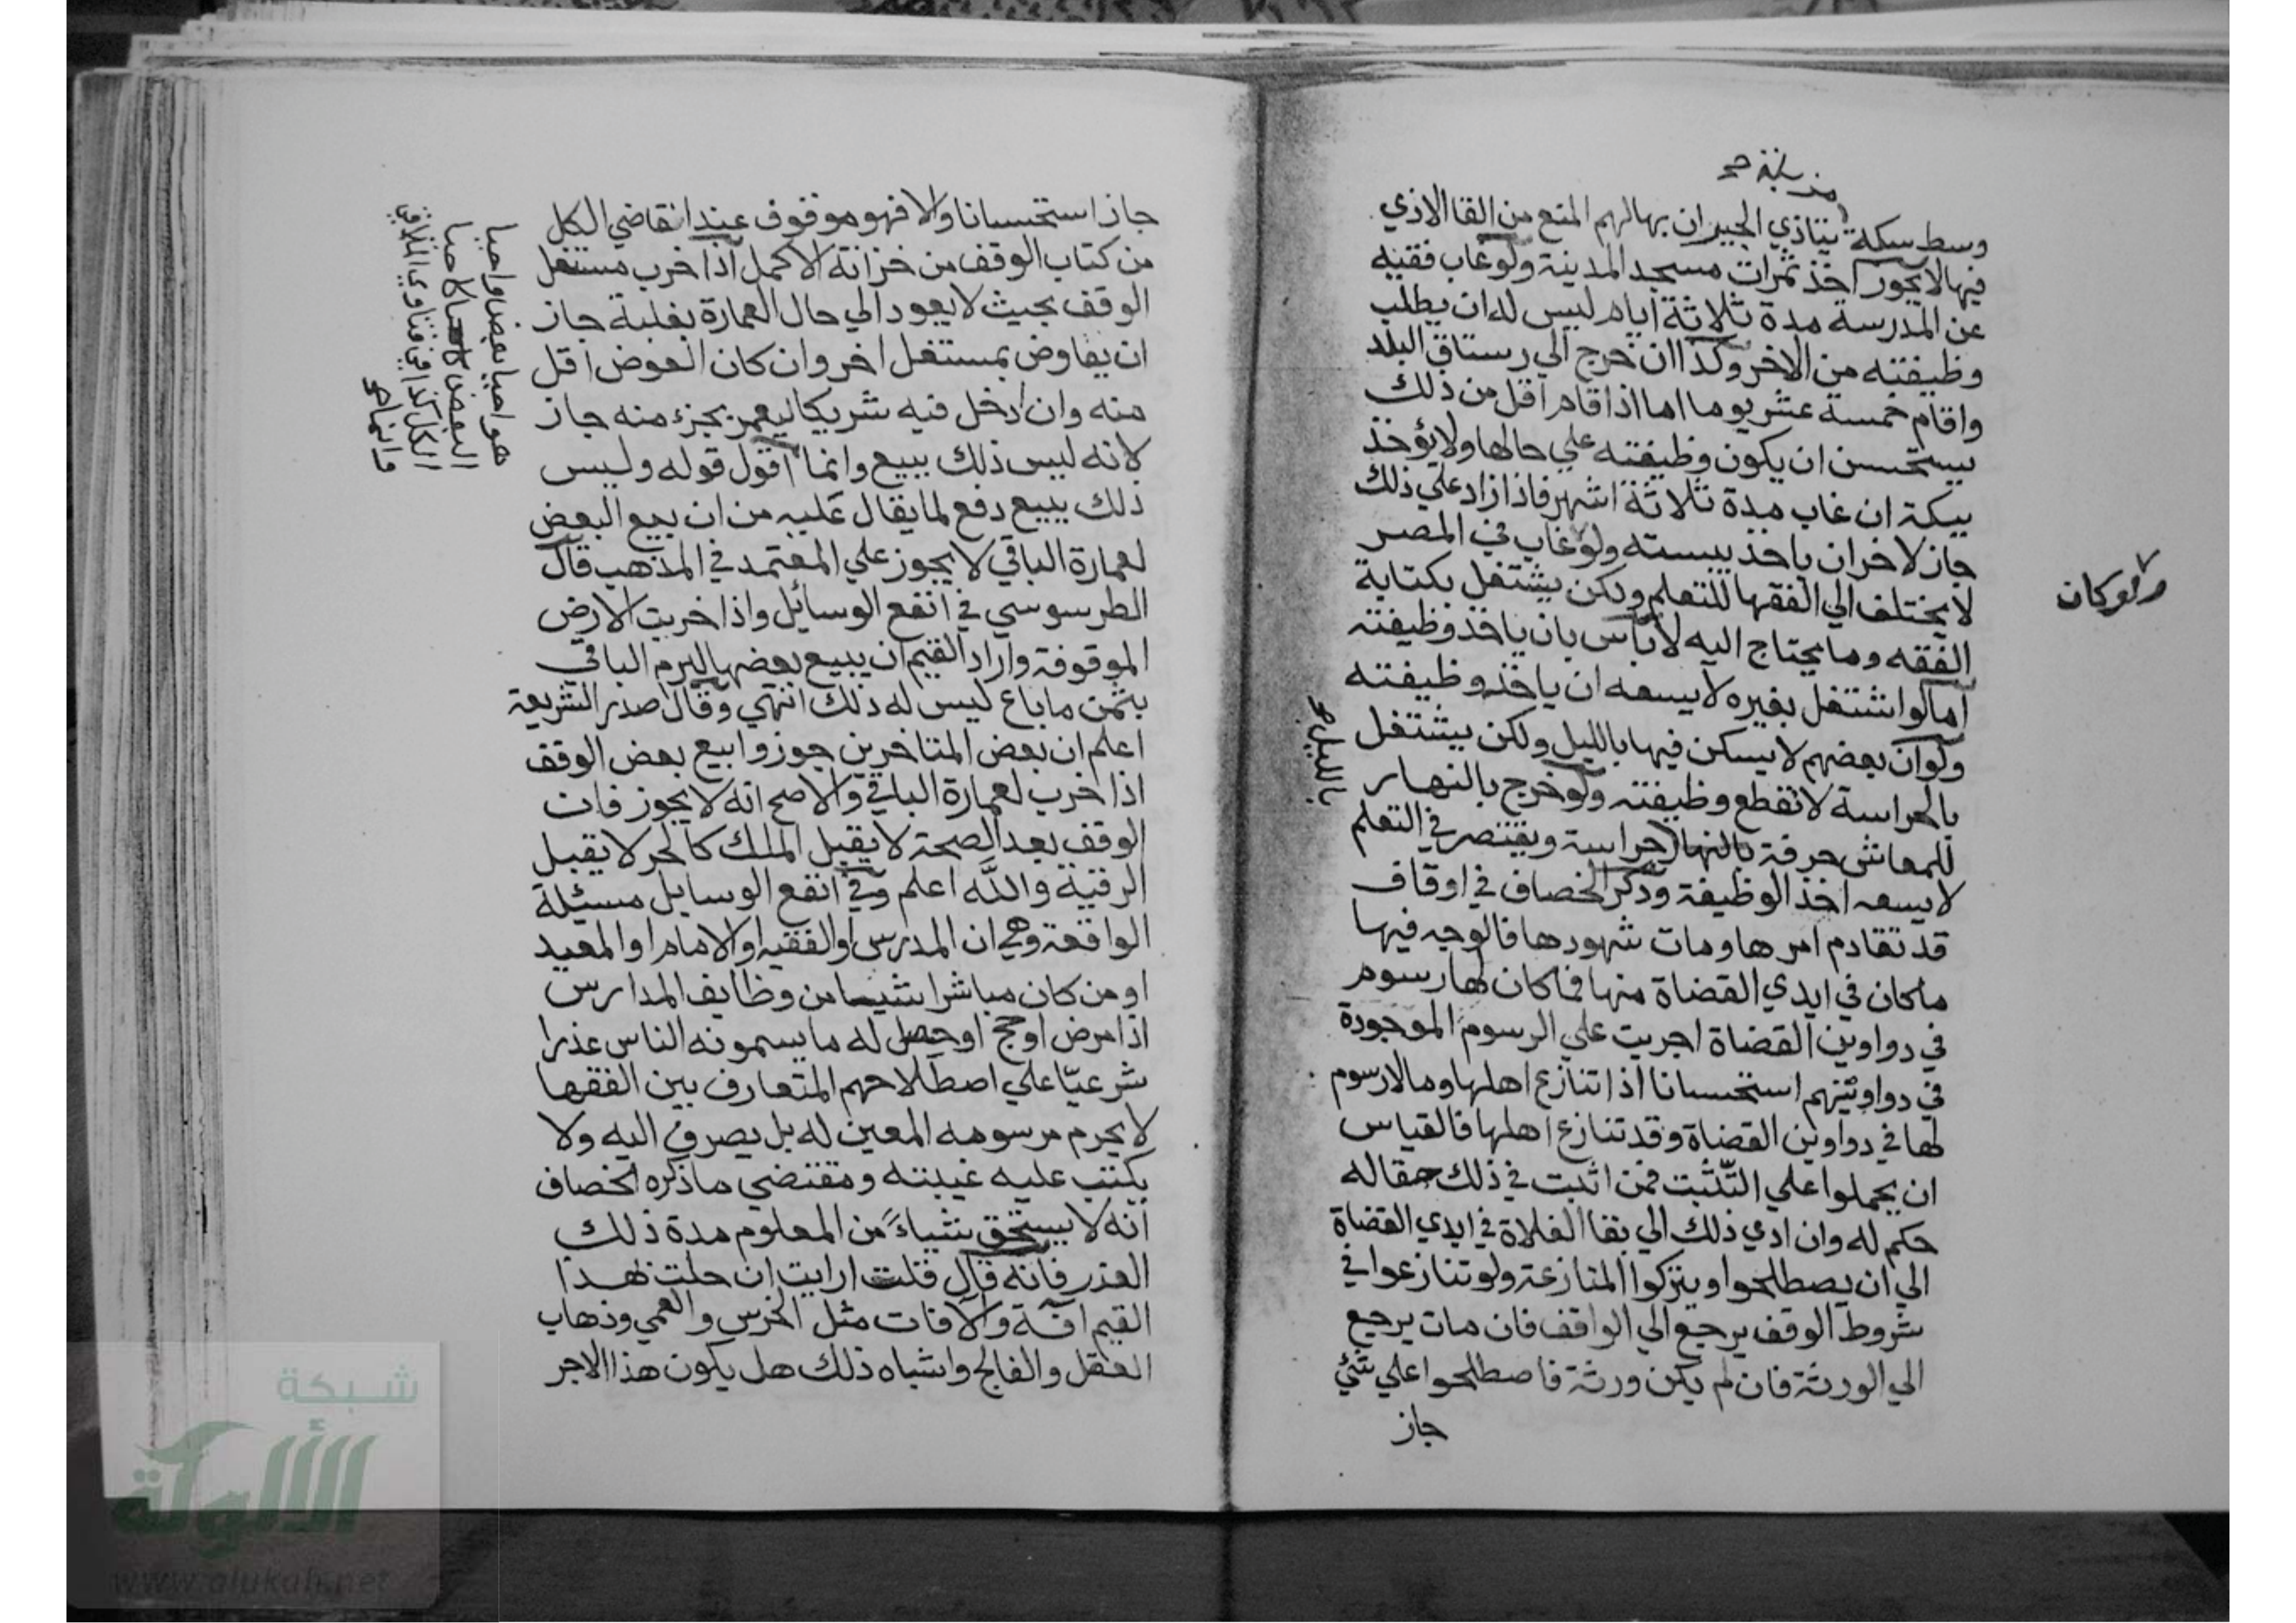 وسط سكة يتاذي الجيران بها لهم المنع من القا الاذي
فيها لا يجوز اخذ ثمرات مسجد المدينة ولو غاب فقيه
عن المدرسة مدة ثلاثة ايام ليس له ان يطلب
وظيفته من الاخر وكذا ان خرج الي رستاق البلد
واقام خمسة عشر يوما اما اذا قام اقل من ذلك
يستحسن ان يكون وظيفته علي حالها ولا يؤخذ
بيكة ان غاب مدة ثلاثة اشهر فاذا زاد علي ذلك
جاز لاخر ان ياخذ بيسته ولو غاب في المصر
لا يختلف الي الفقها للتعلم ولكن يشتغل بكتابة
الفقه وما يحتاج اليه لا باس بان ياخذ وظيفته
اما لو اشتغل بغيره لا يسعه ان ياخذ وظيفته
ولو ان بعضهم لا يسكن فيها بالليل ولكن يشتغل
بالحراسة لا تقطع وظيفته ولو خرج بالنهار
للمعاش حرفة بالنهار حراسة ويقتصر في التعلم
لا يسعه اخذ الوظيفة وذكر الخصاف في اوقاف
قد تقادم امرها ومات شهودها فالوجه فيها
ما كان في ايدي القضاة منها فما كان لها رسوم
في دواوين القضاة اجريت علي الرسوم الموجودة
في دواوينهم استحسانا اذا تنازع اهلها وما لا رسوم
لها في دواوين القضاة وقد تنازع اهلها فالقياس
ان يحملوا علي التثبت فمن اثبت في ذلك مقاله
حكم له وان ادي ذلك الي بقا الغلاة في ايدي القضاة
الي ان يصطلحوا ويتركوا المنازعة ولو تنازعوا في
شروط الوقف يرجع الي الواقف فان مات يرجع
الي الورثة فان لم يكن ورثة فاصطلحوا علي شئ
جاز
ولو كان
بالليل
جاز استحسانا والا فهو موقوف عند انقاضي الكل
من كتاب الوقف من خزانة الاكمل اذا خرب مستغل
الوقف بحيث لا يعود الي حال العمارة بغلبة جاز
ان يعاوض بمستغل اخر وان كان العوض اقل
منه وان ادخل فيه شريكا ليعمر بجزء منه جاز
لانه ليس ذلك ببيع وانما اقول قوله وليس
ذلك ببيع دفع لما يقال عليه من ان بيع البعض
لعمارة الباقي لا يجوز علي المعتمد في المذهب قال
الطرسوسي في انفع الوسائل واذا خربت الارض
الموقوفة واراد القيم ان يبيع بعضها ليرم الباقي
بثمن ما باع ليس له ذلك انتهي وقال صدر الشريعة
اعلم ان بعض المتاخرين جوزوا بيع بعض الوقف
اذا خرب لعمارة الباقي والاصح انه لا يجوز فان
الوقف بعد الصحة لا يقبل الملك كالحر لا يقبل
الرقية والله اعلم وفي انفع الوسايل مسئيلة
الواقعة وهي ان المدرس او الفقيه او الامام او المعيد
او من كان مباشرا شيا من وظايف المدارس
اذا مرض او حج او حصل له ما يسمونه الناس عذرا
شرعيّا علي اصطلاحهم المتعارف بين الفقها
لا يحرم مرسومه المعين له بل يصرف اليه ولا
يكتب عليه غيبته ومقتضي ما ذكره الخصاف
انه لا يستحق شياءً من المعلوم مدة ذلك
العذر فانه قال قلت ارايت ان حلت بهذا
القيم افة والآفات مثل الخرس والعمي وذهاب
العقل والفالج واشباه ذلك هل يكون هذا الاجر
شبكة
الألوكة
www.alukah.net